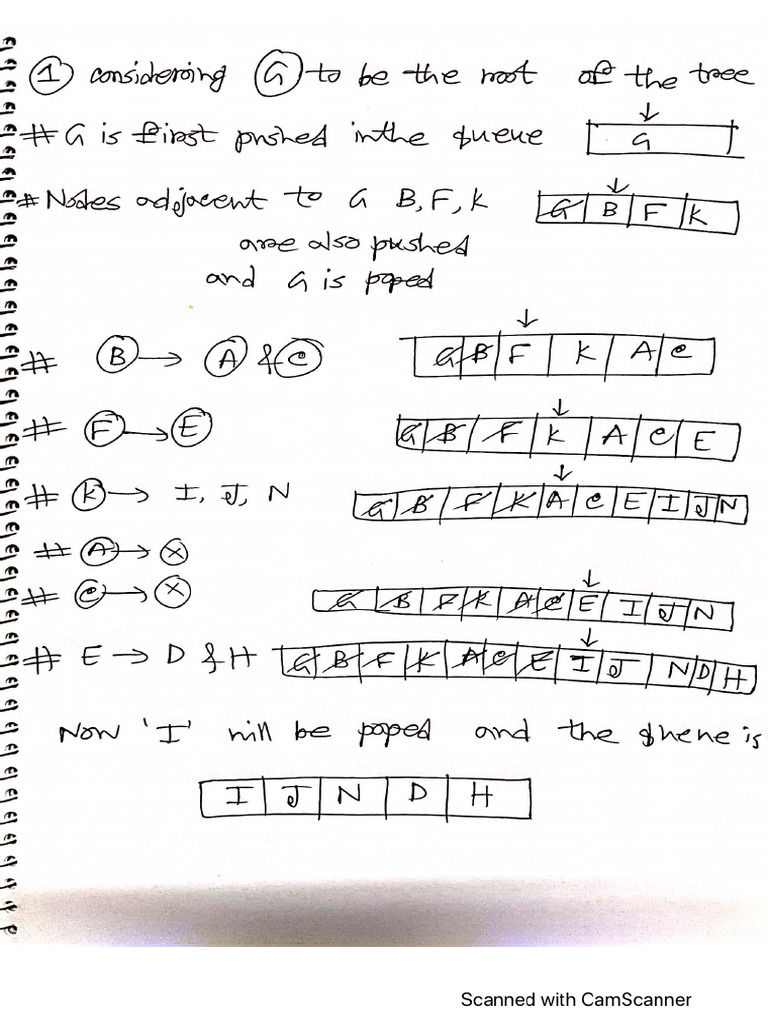 ① considering Ⓖ to be the root of the tree
↓
# G is first pushed in the queue G
↓
# Nodes adjacent to G B, F, K G B F K
are also pushed
and G is poped
↓
# Ⓑ → Ⓐ & Ⓒ G B F K A C
↓
# Ⓕ → Ⓔ G B F K A C E
↓
# Ⓚ → I, J, N G B F K A C E I J N
# Ⓐ → ⓧ
↓
# Ⓒ → ⓧ G B F K A C E I J N
↓
# E → D & H G B F K A C E I J N D H
Now 'I' will be poped and the queue is
I J N D H
Scanned with CamScanner